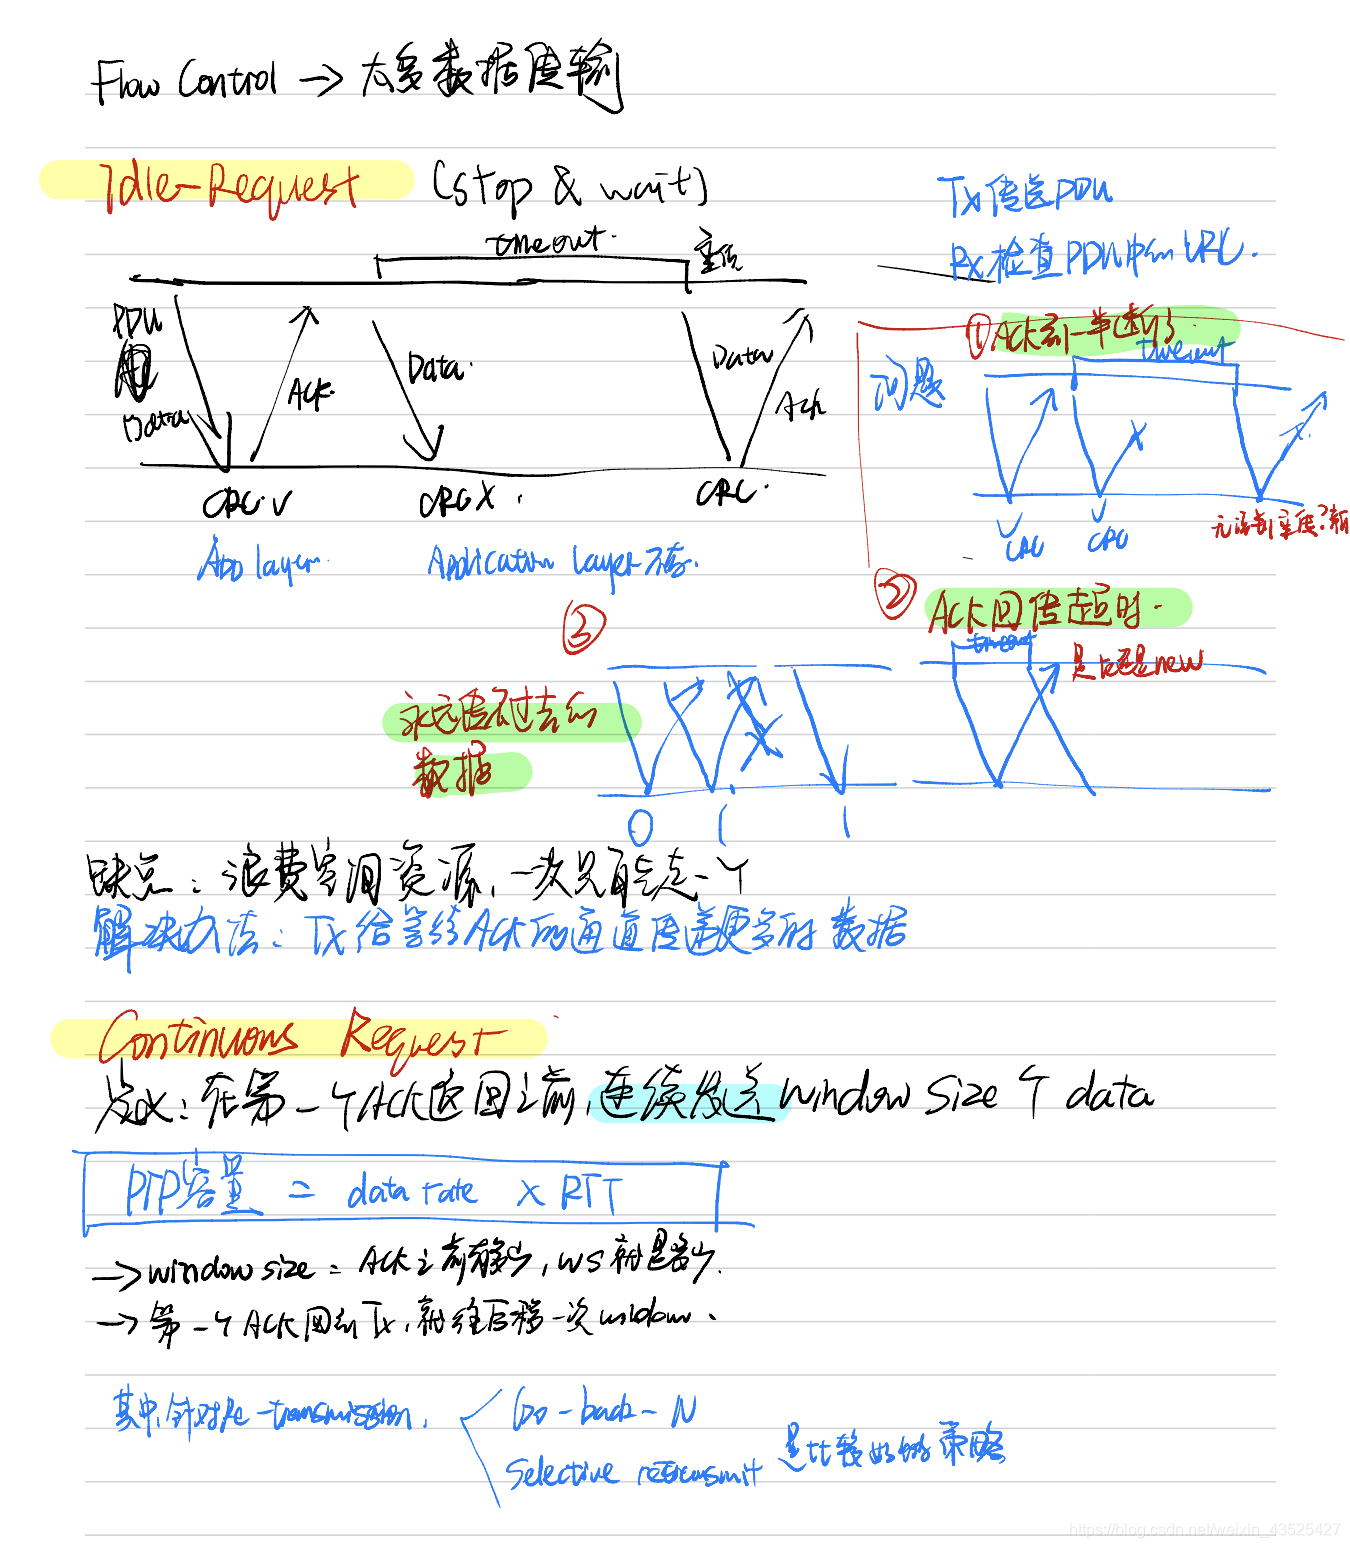 Flow Control → 太多数据传输
Idle-Request (stop & wait)
Tx 传送 PDU
Rx 检查 PDU 中的 CRC.
timeout.
重传
PDU
Data
Ack
Data.
Data
Ack
CRC √
CRC X.
CRC.
App layer.
Application layer 不存.
问题
① Ack 到一半断了
timeout
CRC
CRC
② Ack 回传超时.
timeout
是 还是 new
③
永远传不过去的
数据
0 1 1
缺点: 浪费空间资源, 一次只能走一个
解决办法: Tx 给等待 Ack 的通道传递更多的数据
Continuous Request
定义: 在第一个 Ack 返回之前, 连续发送 window size 个 data
PTP容量 = data rate × RTT
→ window size = Ack 之前能多少, WS 就是多少.
→ 第一个 Ack 回到 Tx, 就往后移一次 window.
其中, 针对 Re-transmission,
Go-back-N
Selective retransmit 是比较好的策略
https://blog.csdn.net/weixin_43525427